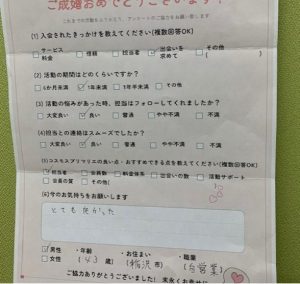 ご成婚おめでとうございます!
これまでの活動をふりかえり、アンケートのご協力をお願い致します
(1)入会されたきっかけを教えてください(複数回答OK)
□サービス料金 □信頼 □担当者 ☑出会いを求めて □その他( )
(2)活動の期間はどのくらいですか?
□6か月未満 ☑1年未満 □1年半未満 □その他
(3)活動の悩みがあった時、担当はフォローしてくれましたか?
□大変良い ☑良い □普通 □やや不満 □不満
(4)担当との連絡はスムーズでしたか?
□大変良い ☑良い □普通 □やや不満 □不満
(5)コスモスプリマリエの良い点・おすすめできる点を教えてください(複数回答OK)
☑担当者 □会員数 □料金体系 □出会いの数 □活動サポート
□会員の質 □その他(
(6)今のお気持ちをお願いします
とても良かった
☑男性 ・年齢 ・お住まい ・職業
□女性 (43歳) (稲沢市) (自営業)
ご協力ありがとうございました! 末永くお幸せに